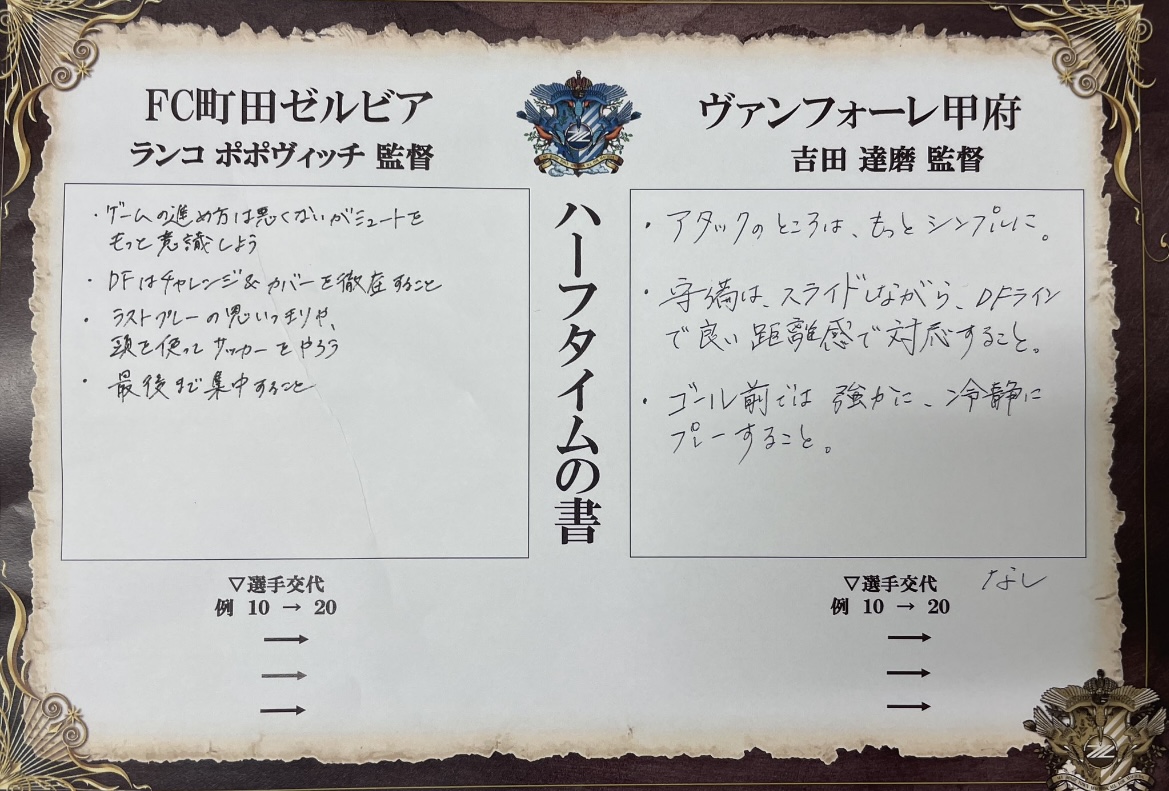 FC町田ゼルビア
ランコ ポポヴィッチ 監督
・ゲームの進め方は悪くないがミュートを
もっと意識しよう
・DFはチャレンジ&カバーを徹底すること
・ラストプレーの思いっきりや、
頭を使ってサッカーをやろう
・最後まで集中すること
▽選手交代
例 10 → 20
→
→
→
ハーフタイムの書
ヴァンフォーレ甲府
吉田 達磨 監督
・アタックのところは、もっとシンプルに。
・守備は、スライドしながら、DFライン
で良い距離感で対応すること。
・ゴール前では強力に、冷静に
プレーすること。
▽選手交代 なし
例 10 → 20
→
→
→